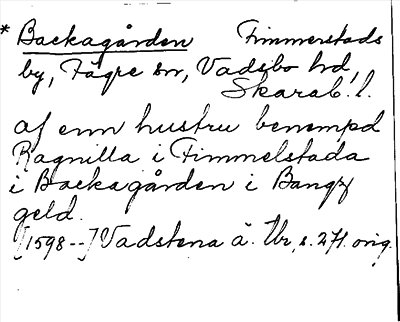 * Backagården Fimmerstads
by, Fägre sn, Vadsbo hd,
Skarab. l.
af enn hustru benempd
Ragnilla i Fimmelstada
i Backagården i Bangz
geld.
[1598--] Vadstena ä. Ur, s. 271. orig.